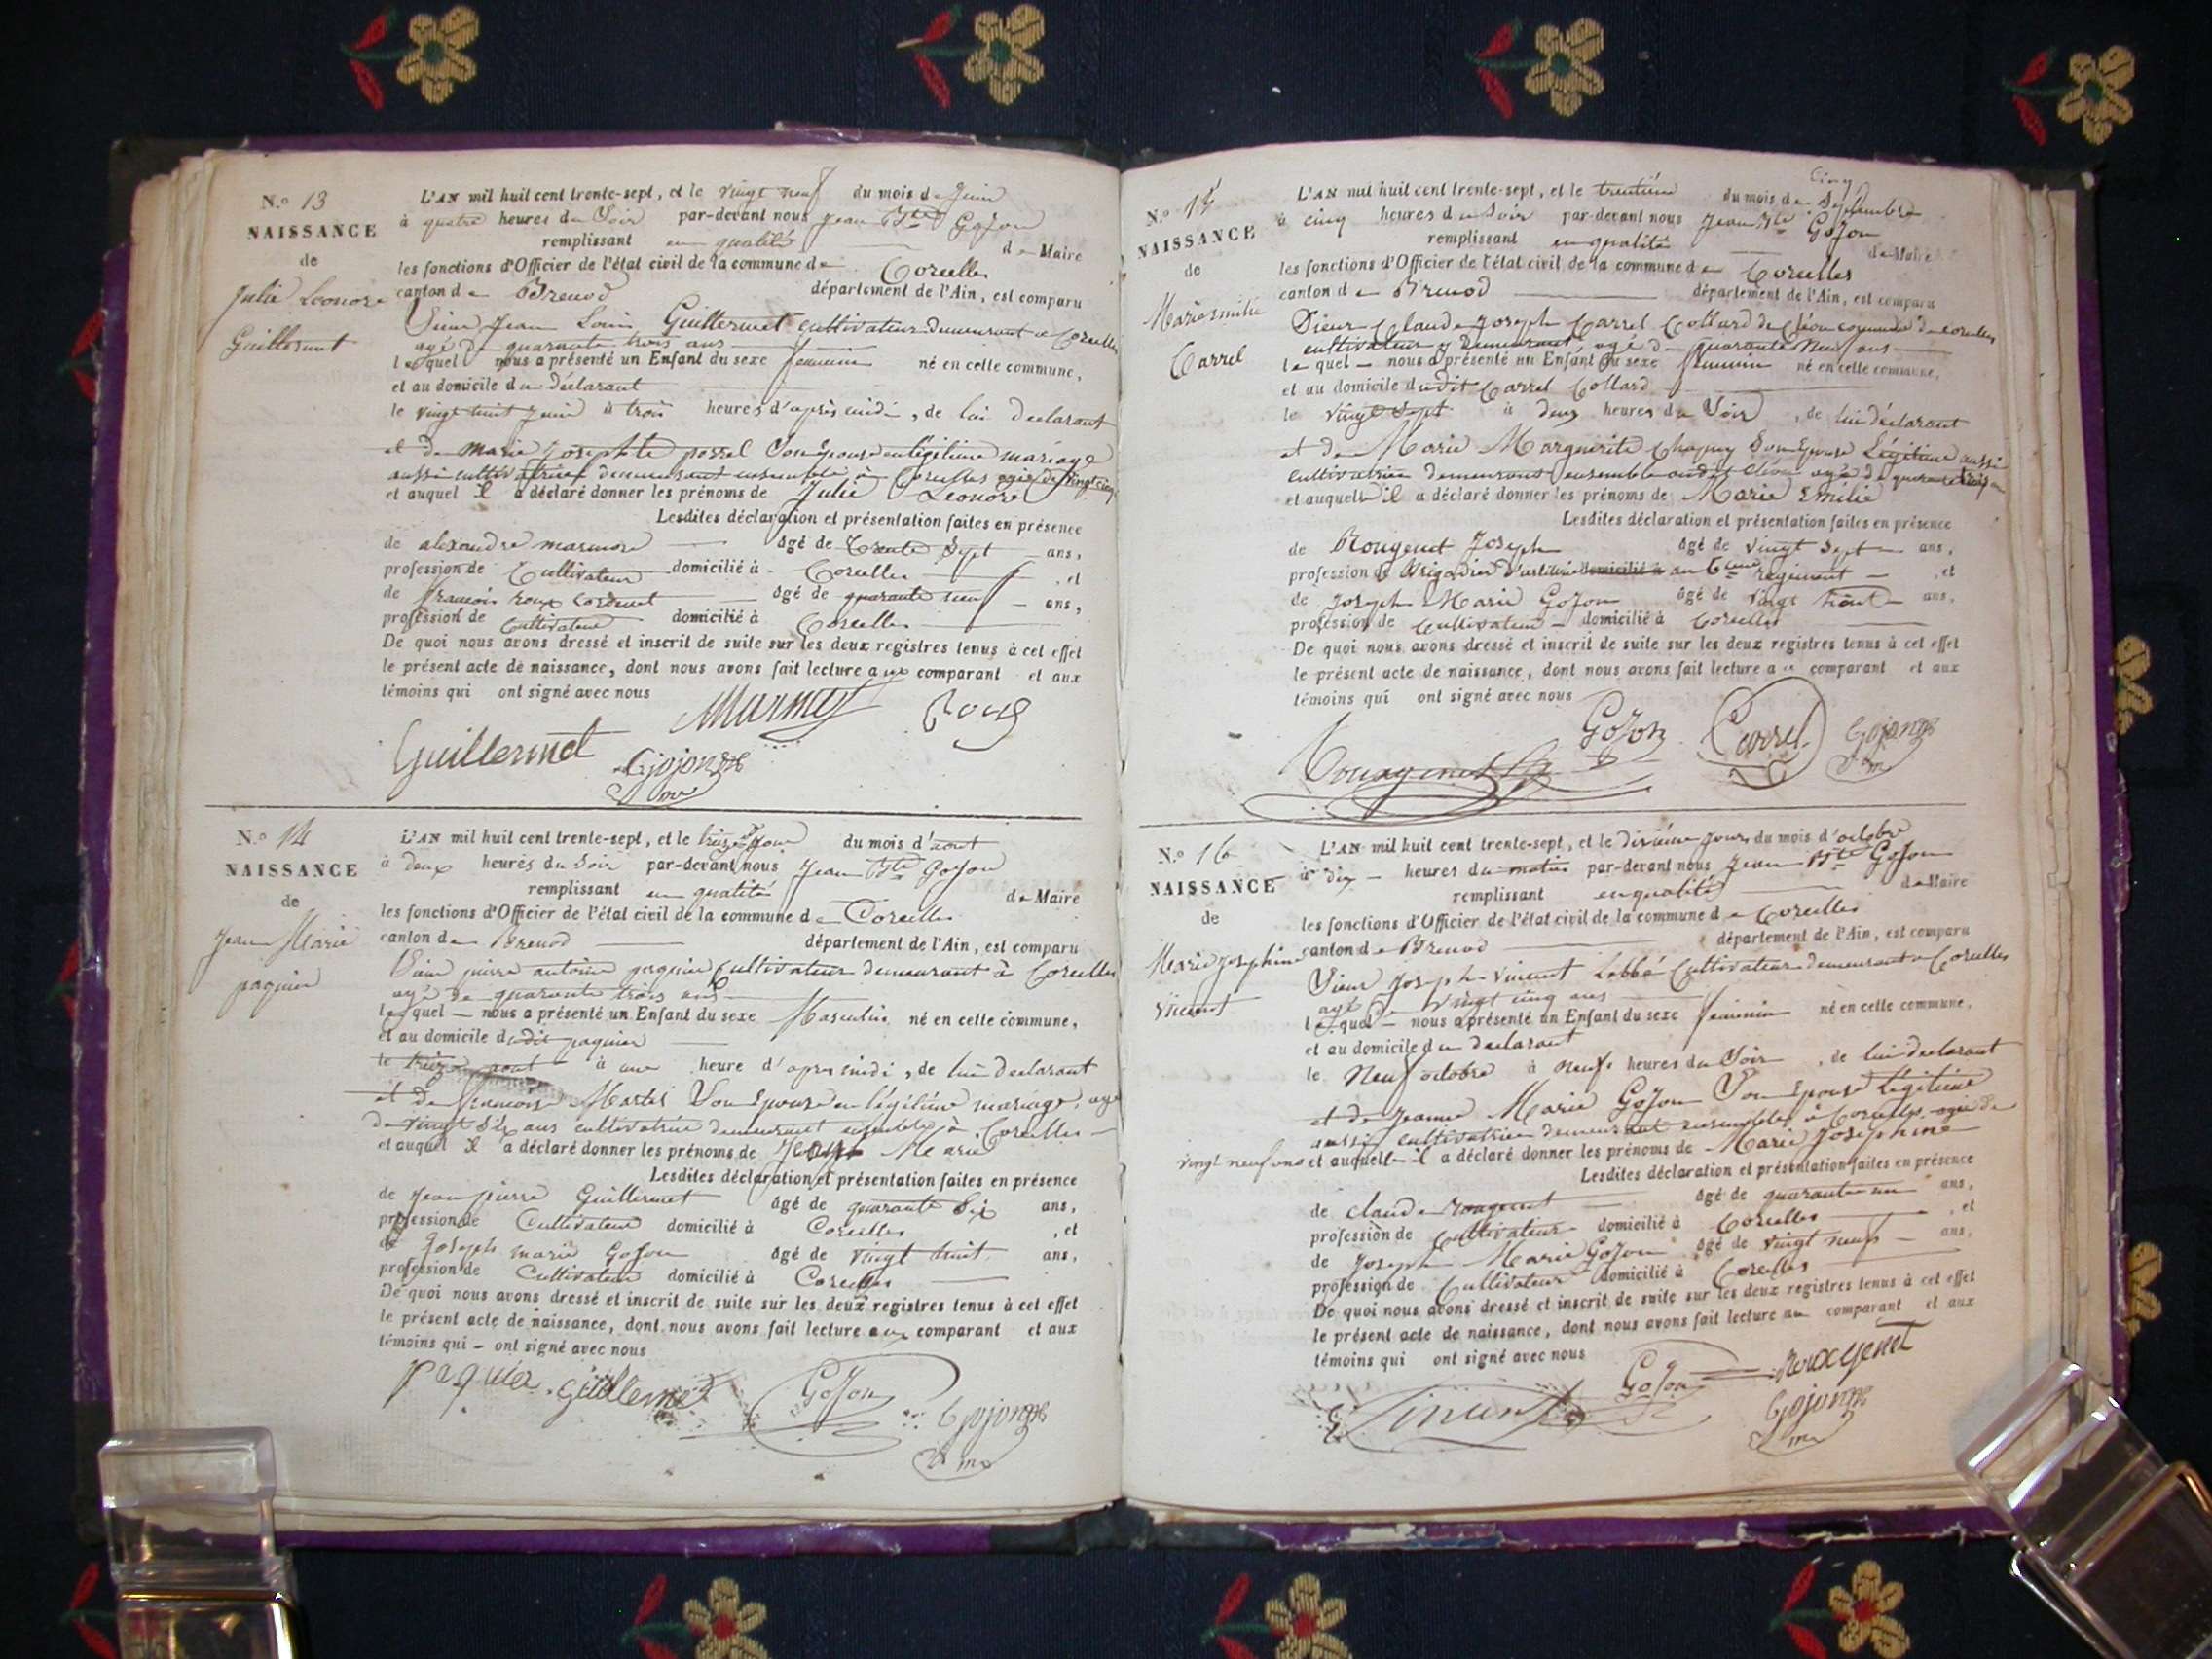 N.º 13
NAISSANCE
de
Julie Leonore
Guillermet
L'AN mil huit cent trente-sept, et le vingt neuf du mois de Juin
à quatre heures du Soir par-devant nous Jean Bte Gojon
remplissant en qualité de Maire
les fonctions d'Officier de l'état civil de la commune de Corcelles
canton de Brenod département de l'Ain, est comparu
Sieur Jean Louis Guillermet cultivateur demeurant a Corcelles
agé de quarante trois ans
lequel nous a présenté un Enfant du sexe feminin né en cette commune,
et au domicile du déclarant
le vingt huit Juin à trois heures d'après midi, de lui declarant
et de Marie Josephte perrel Son Epouse en légitime mariage
aussi cultivatrice demeurant ensemble à Corcelles agée de vingt cinq
et auquel il a déclaré donner les prénoms de Julie Leonore
Lesdites déclaration et présentation faites en présence
de alexandre marmore âgé de trente Sept ans,
profession de Cultivateur domicilié à Corcelles, et
de francois roux âgé de quarante neuf ans,
profession de Cultivateur domicilié à Corcelles
De quoi nous avons dressé et inscrit de suite sur les deux registres tenus à cet effet
le présent acte de naissance, dont nous avons fait lecture aux comparant et aux
témoins qui ont signé avec nous
Guillermet Roux
Gojon
N.º 14
NAISSANCE
de
Jean Marie
paquier
L'AN mil huit cent trente-sept, et le treize du mois d'aout
à deux heures du Soir par-devant nous Jean Bte Gojon
remplissant en qualité de Maire
les fonctions d'Officier de l'état civil de la commune de Corcelles
canton de Brenod département de l'Ain, est comparu
Sieur pierre antoine paquier Cultivateur demeurant à Corcelles
agé de quarante trois ans
lequel nous a présenté un Enfant du sexe Masculin né en cette commune,
et au domicile dudit paquier
le treize aout à une heure d'apres midi, de lui declarant
et de francoise Martel Son Epouse en légitime mariage, agé
de vingt Six ans cultivatrice demeurant ensemble à Corcelles
et auquel il a déclaré donner les prénoms de Jean Marie
Lesdites déclaration et présentation faites en présence
de Jean pierre Guillermet âgé de quarante Six ans,
profession de Cultivateur domicilié à Corcelles, et
de Joseph marie Gojon âgé de vingt huit ans,
profession de Cultivateur domicilié à Corcelles
De quoi nous avons dressé et inscrit de suite sur les deux registres tenus à cet effet
le présent acte de naissance, dont nous avons fait lecture aux comparant et aux
témoins qui ont signé avec nous
Paquier Guillermet Gojon Gojon
N.º 15
NAISSANCE
de
Marie Emilie
Carrel
L'AN mil huit cent trente-sept, et le trentième du mois de Septembre
à cinq heures du Soir par-devant nous Jean Bte Gojon
remplissant en qualité de Maire
les fonctions d'Officier de l'état civil de la commune de Corcelles
canton de Brenod département de l'Ain, est comparu
Sieur Claude Joseph Carrel Collard de commune de corcelles
cultivateur y demeurant, agé de quarante Neuf ans
lequel nous a présenté un Enfant du sexe feminin né en cette commune,
et au domicile dudit Carrel Collard
le vingt Sept à deux heures du Soir, de lui déclarant
et de Marie Marguerite Chapuy Son Epouse Légitime aussi
Cultivatrice demeurant ensemble audit agée de quarante trois
et auquelle il a déclaré donner les prénoms de Marie Emilie
Lesdites déclaration et présentation faites en présence
de Rougemet Joseph âgé de vingt Sept ans,
profession de Brigadier d'artillerie domicilié à au 6eme regiment, et
de Joseph Marie Gojon âgé de vingt huit ans,
profession de Cultivateur domicilié à Corcelles
De quoi nous avons dressé et inscrit de suite sur les deux registres tenus à cet effet
le présent acte de naissance, dont nous avons fait lecture au comparant et aux
témoins qui ont signé avec nous
Gojon Carrel Gojon
N.º 16
NAISSANCE
de
Marie Josephine
Vincent
L'AN mil huit cent trente-sept, et le dixième Jour du mois d'octobre
à dix heures du matin par-devant nous Jean Bte Gojon
remplissant en qualité de Maire
les fonctions d'Officier de l'état civil de la commune de Corcelles
canton de Brenod département de l'Ain, est comparu
Sieur Joseph Vincent Labbé Cultivateur demeurant a Corcelles
agé de vingt cinq ans
lequel nous a présenté un Enfant du sexe feminin né en cette commune,
et au domicile du declarant
le Neuf octobre à neuf heures du Soir, de lui declarant
et de Jeanne Marie Gojon Son Epouse Légitime
aussi cultivatrice demeurant ensemble à Corcelles agée de
vingt neuf ans et auquelle il a déclaré donner les prénoms de Marie Josephine
Lesdites déclaration et présentation faites en présence
de claude rougemet âgé de quarante un ans,
profession de Cultivateur domicilié à Corcelles, et
de Joseph Marie Gojon âgé de vingt neuf ans,
profession de Cultivateur domicilié à Corcelles
De quoi nous avons dressé et inscrit de suite sur les deux registres tenus à cet effet
le présent acte de naissance, dont nous avons fait lecture au comparant et aux
témoins qui ont signé avec nous
Vincent Gojon Gojon